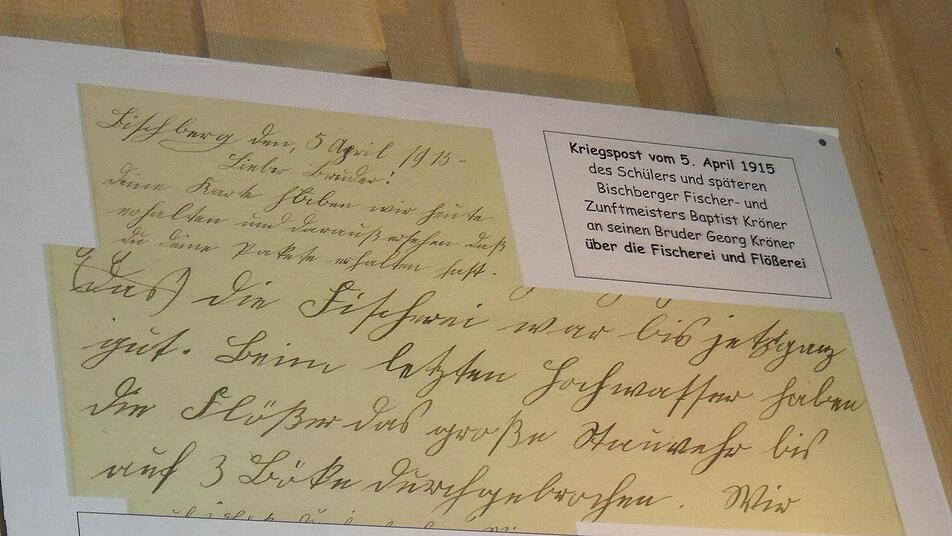 Bischberg den, 5 April 1915-
Lieber Bruder!
deine Karte haben wir heute
erhalten und darauß ersehen daß
du deine Pakete erhalten hast.
(das) die Fischerei war bis jetzt ganz
gut. Beim letzten Hochwasser haben
die Flößer das große Stauwehr bis
auf 3 Böke durchgebrochen. Wir
Kriegspost vom 5. April 1915
des Schülers und späteren
Bischberger Fischer- und
Zunftmeisters Baptist Kröner
an seinen Bruder Georg Kröner
über die Fischerei und Flößerei